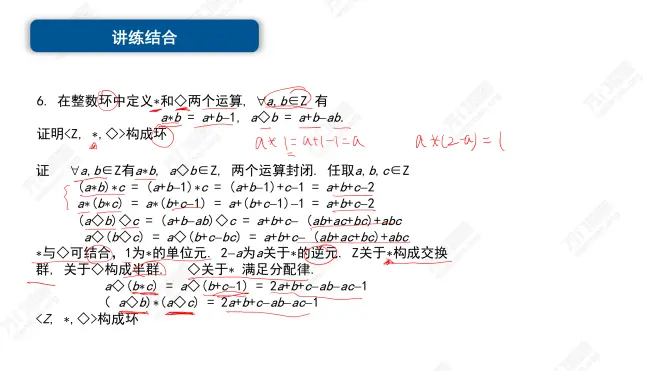 讲练结合
6. 在整数环中定义*和◇两个运算, ∀a,b∈Z 有
a*b = a+b-1, a◇b = a+b-ab.
证明<Z, *,◇>构成环
a*1=a+1-1=a
a*(2-a)=1
证 ∀a,b∈Z有a*b, a◇b∈Z, 两个运算封闭. 任取a,b,c∈Z
(a*b)*c = (a+b-1)*c = (a+b-1)+c-1 = a+b+c-2
a*(b*c) = a*(b+c-1) = a+(b+c-1)-1 = a+b+c-2
(a◇b)◇c = (a+b-ab)◇c = a+b+c- (ab+ac+bc)+abc
a◇(b◇c) = a◇(b+c-bc) = a+b+c- (ab+ac+bc)+abc
*与◇可结合, 1为*的单位元. 2-a为a关于*的逆元. Z关于*构成交换
群, 关于◇构成半群. ◇关于* 满足分配律.
a◇(b*c) = a◇(b+c-1) = 2a+b+c-ab-ac-1
( a◇b)*(a◇c) = 2a+b+c-ab-ac-1
<Z, *,◇>构成环